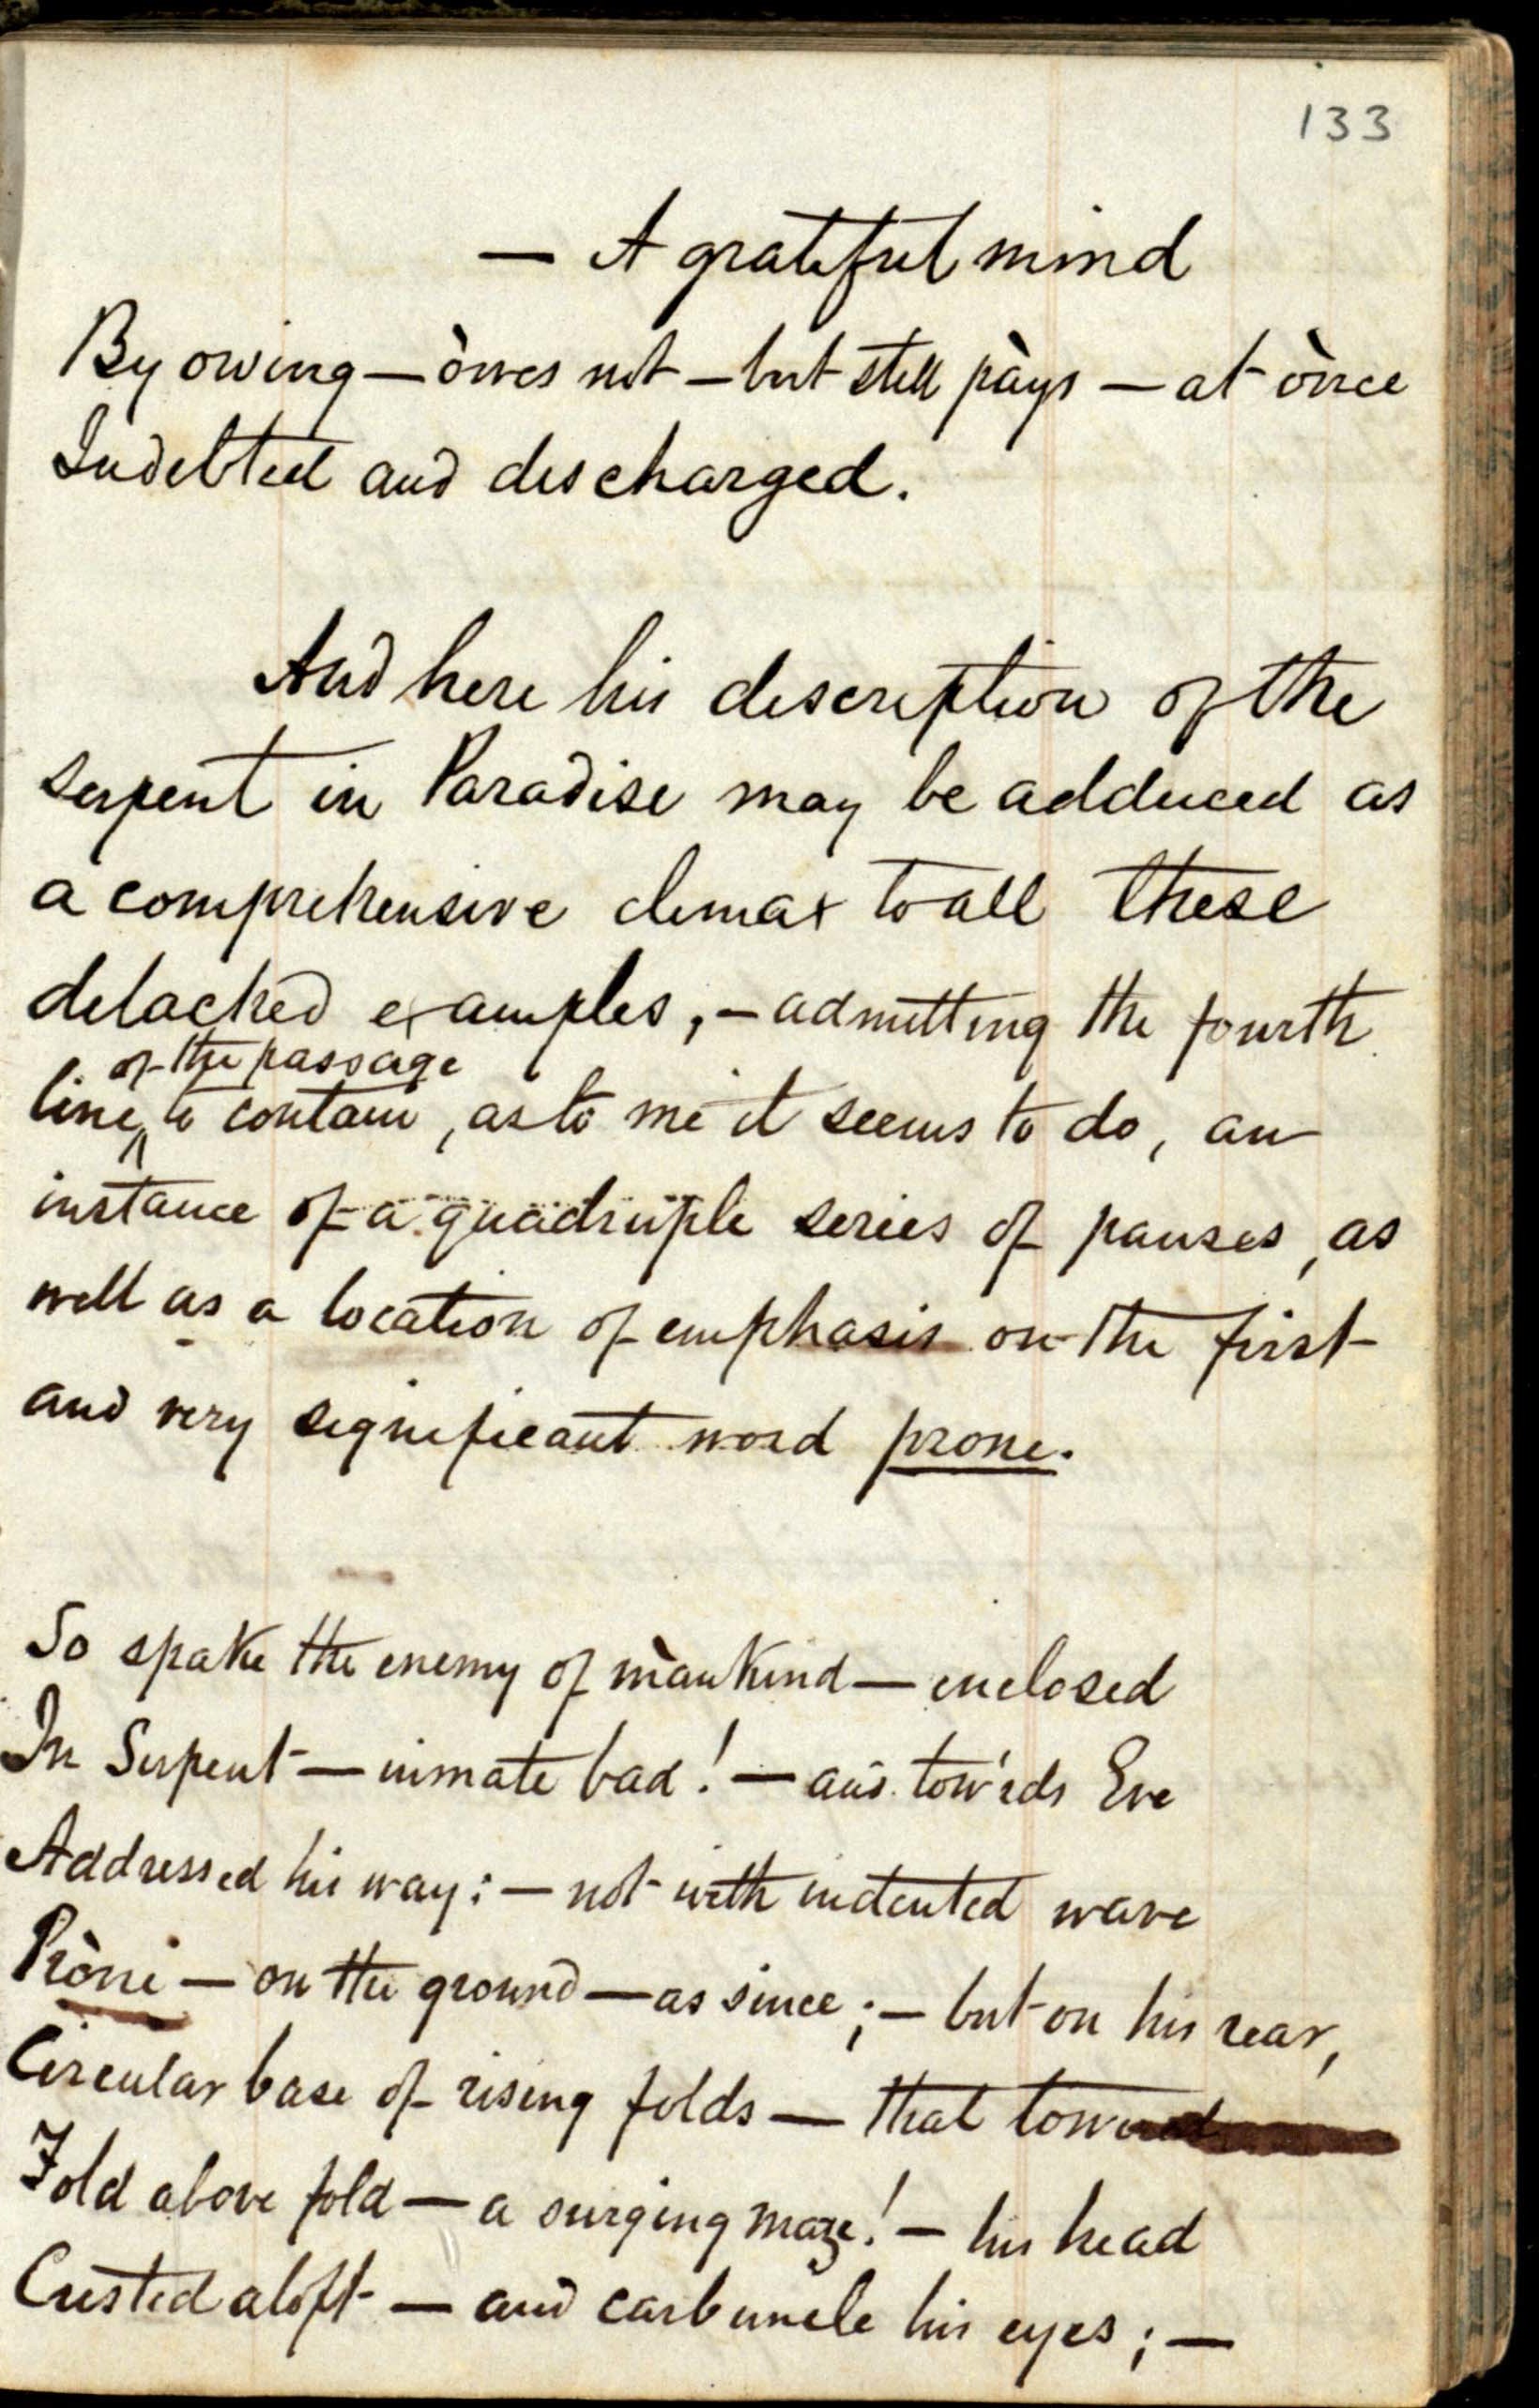 133
— A grateful mind
By owing — òwes not — but still pàys — at ònce
Indebted and discharged.
And here his description of the
serpent in Paradise may be adduced as
a comprehensive climax to all these
detached examples, — admitting the fourth
of the passage
line, to contain, as to me it seems to do, an
instance of a quadruple series of pauses, as
well as a location of emphasis on the first
and very significant word prone.
So spake the enemy of mànkind — enclosed
In Serpent — inmate bad! — and tow'rds Eve
Addressed his way: — not with indented wave
Pròne — on the ground — as since; — but on his rear,
Circular base of rising folds — that towered
Fold above fold — a surging maze! — his head
Crested aloft — and carbuncle his eyes; —